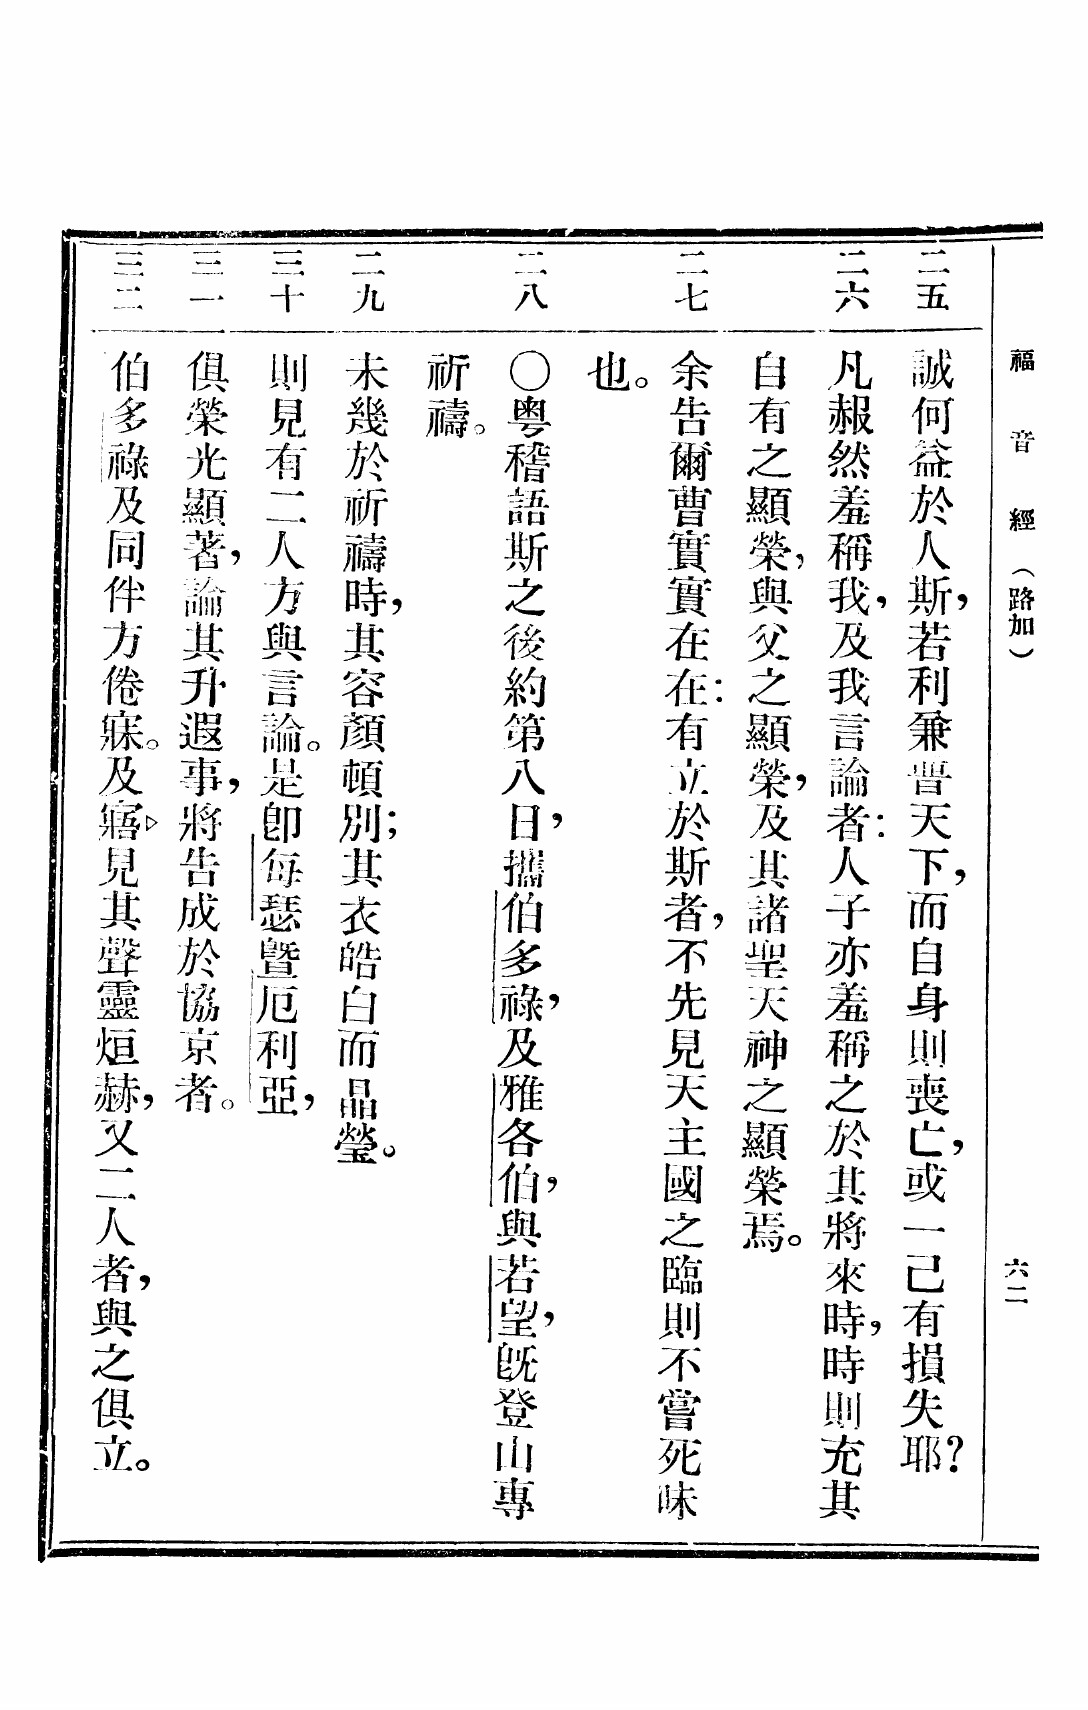 福音經（路加）
六二
二五
誠何益於人斯，若利兼普天下，而自身則喪亡，或一己有損失耶？
二六
凡赧然羞稱我，及我言論者：人子亦羞稱之於其將來時，時則充其
自有之顯榮，與父之顯榮，及其諸聖天神之顯榮焉。
二七
余告爾曹實實在在：有立於斯者，不先見天主國之臨則不嘗死味
也。
二八
〇粵稽語斯之後約第八日，攜伯多祿，及雅各伯，與若望，旣登山專
祈禱。
二九
未幾於祈禱時，其容顏頓別；其衣皓白而晶瑩。
三十
則見有二人方與言論。是卽每瑟曁厄利亞，
三一
俱榮光顯著，論其升遐事，將告成於協京者。
三二
伯多祿及同伴方倦寐。及寤，見其聲靈烜赫，又二人者，與之俱立。